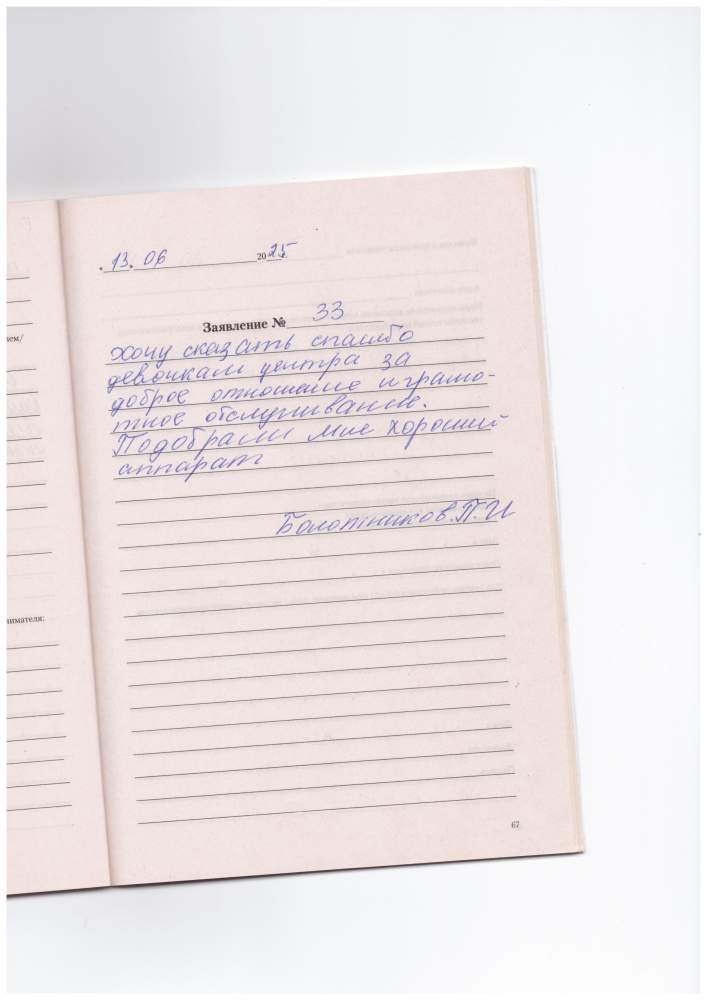 «13» 06 2025
Заявление № 33
Хочу сказать спасибо
девочкам центра за
доброе отношение и грамо-
тное обслуживание.
Подобрали мне хороший
аппарат
Болотников.П.И
нимателя:
67